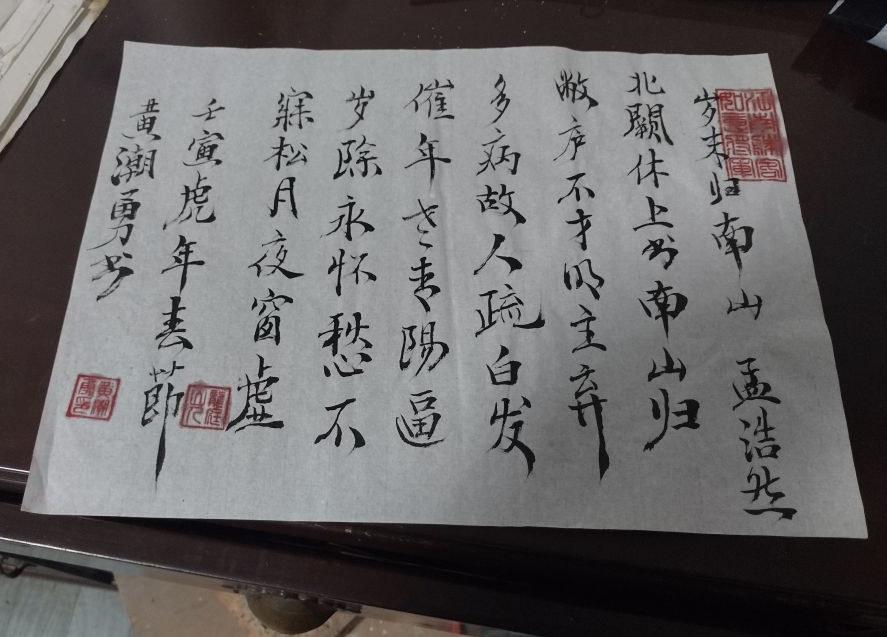 岁末归南山 孟浩然
北闕休上书南山归
敝庐不才明主弃
多病故人疏白发
催年老青陽逼
岁除永怀愁不
寐松月夜窗虚
壬寅虎年春節
黄潮勇书